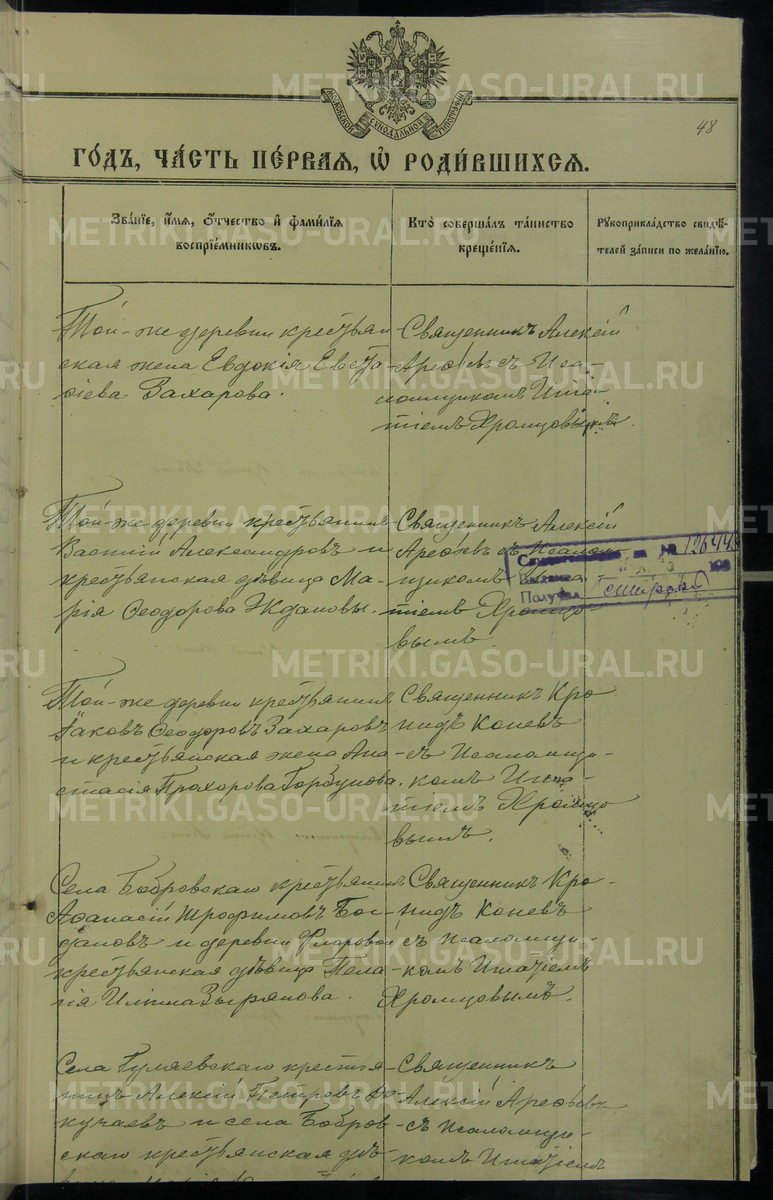 МОСКОВСКОЙ СѴНОДАЛЬНОЙ ТИПОГРАФІИ
48
ГО́ДЪ, ЧА́СТЬ ПЕ́РВАЯ, Ѽ РОДИ́ВШИХСЯ.
Зва́нїе, и҆́мя, ѻ҆́тчество и҆ фами́лїя
воспрїе́мникѡвъ.
Кто̀ соверша́лъ та́инство
креще́нїя.
Рꙋкоприкла́дство свидѣ́-
телей за́писи по жела́нїю.
Той-же деревни крестьян
ская жена Евдокія Евста
фіева Захарова.
Священникъ Алексій
Арефьевъ съ Псал-
момщикомъ Игна-
тіемъ Хромцовымъ.
Той-же деревни крестьянинъ
Василій Александровъ и
крестьянская дѣвица Ма-
рія Ѳеодорова Ждановы.
Священникъ Алексій
Арефьевъ съ Псалом
щикомъ
тіемъ Хромцо
вымъ.
Получил
Той-же деревни крестьянинъ
Іаковъ Ѳеодоровъ Захаровъ
и крестьянская жена Ана-
стасія Прохорова Горбунова.
Священникъ Кро
нидъ Коневъ
съ Псаломщи-
комъ Игна-
тіемъ Хромцо
вымъ.
Села Бобровскаго крестьянинъ
Аѳанасій Трофимовъ Бог-
дановъ и деревни
крестьянская дѣвица Пела-
гія Ильина Зырянова.
Священникъ Кро-
нидъ Коневъ
съ псаломщи-
комъ Игнатіемъ
Хромцовымъ.
Села Гуляевскаго крестья-
нинъ Алексій Петровъ До-
кучаевъ и села Бобров-
скаго крестьянская дѣ-
Священникъ
Алексій Арефьевъ
съ псаломщи-
комъ Игнатіемъ
METRIKI.GASO-URAL.RU